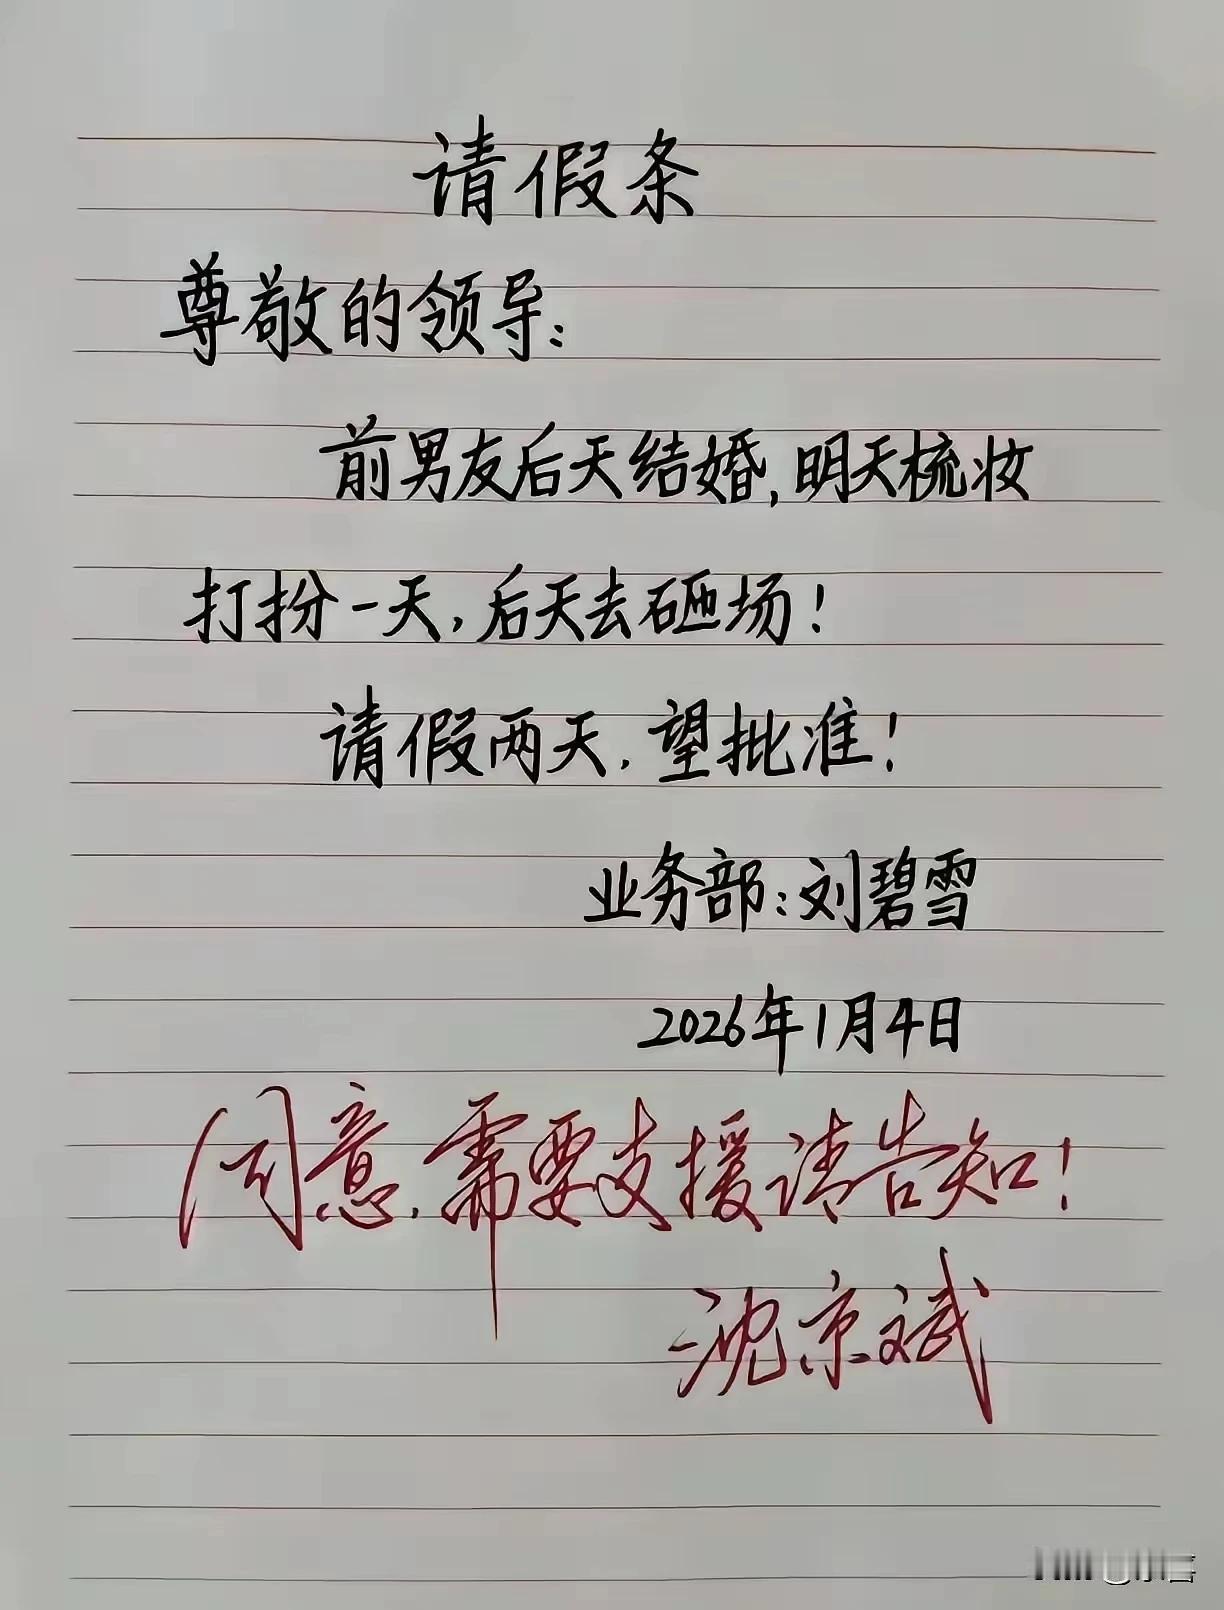 请假条
尊敬的领导:
前男友后天结婚,明天梳妆
打扮一天,后天去砸场!
请假两天,望批准!
业务部:刘碧雪
2026年1月4日
同意,需要支援请告知!
沈京斌